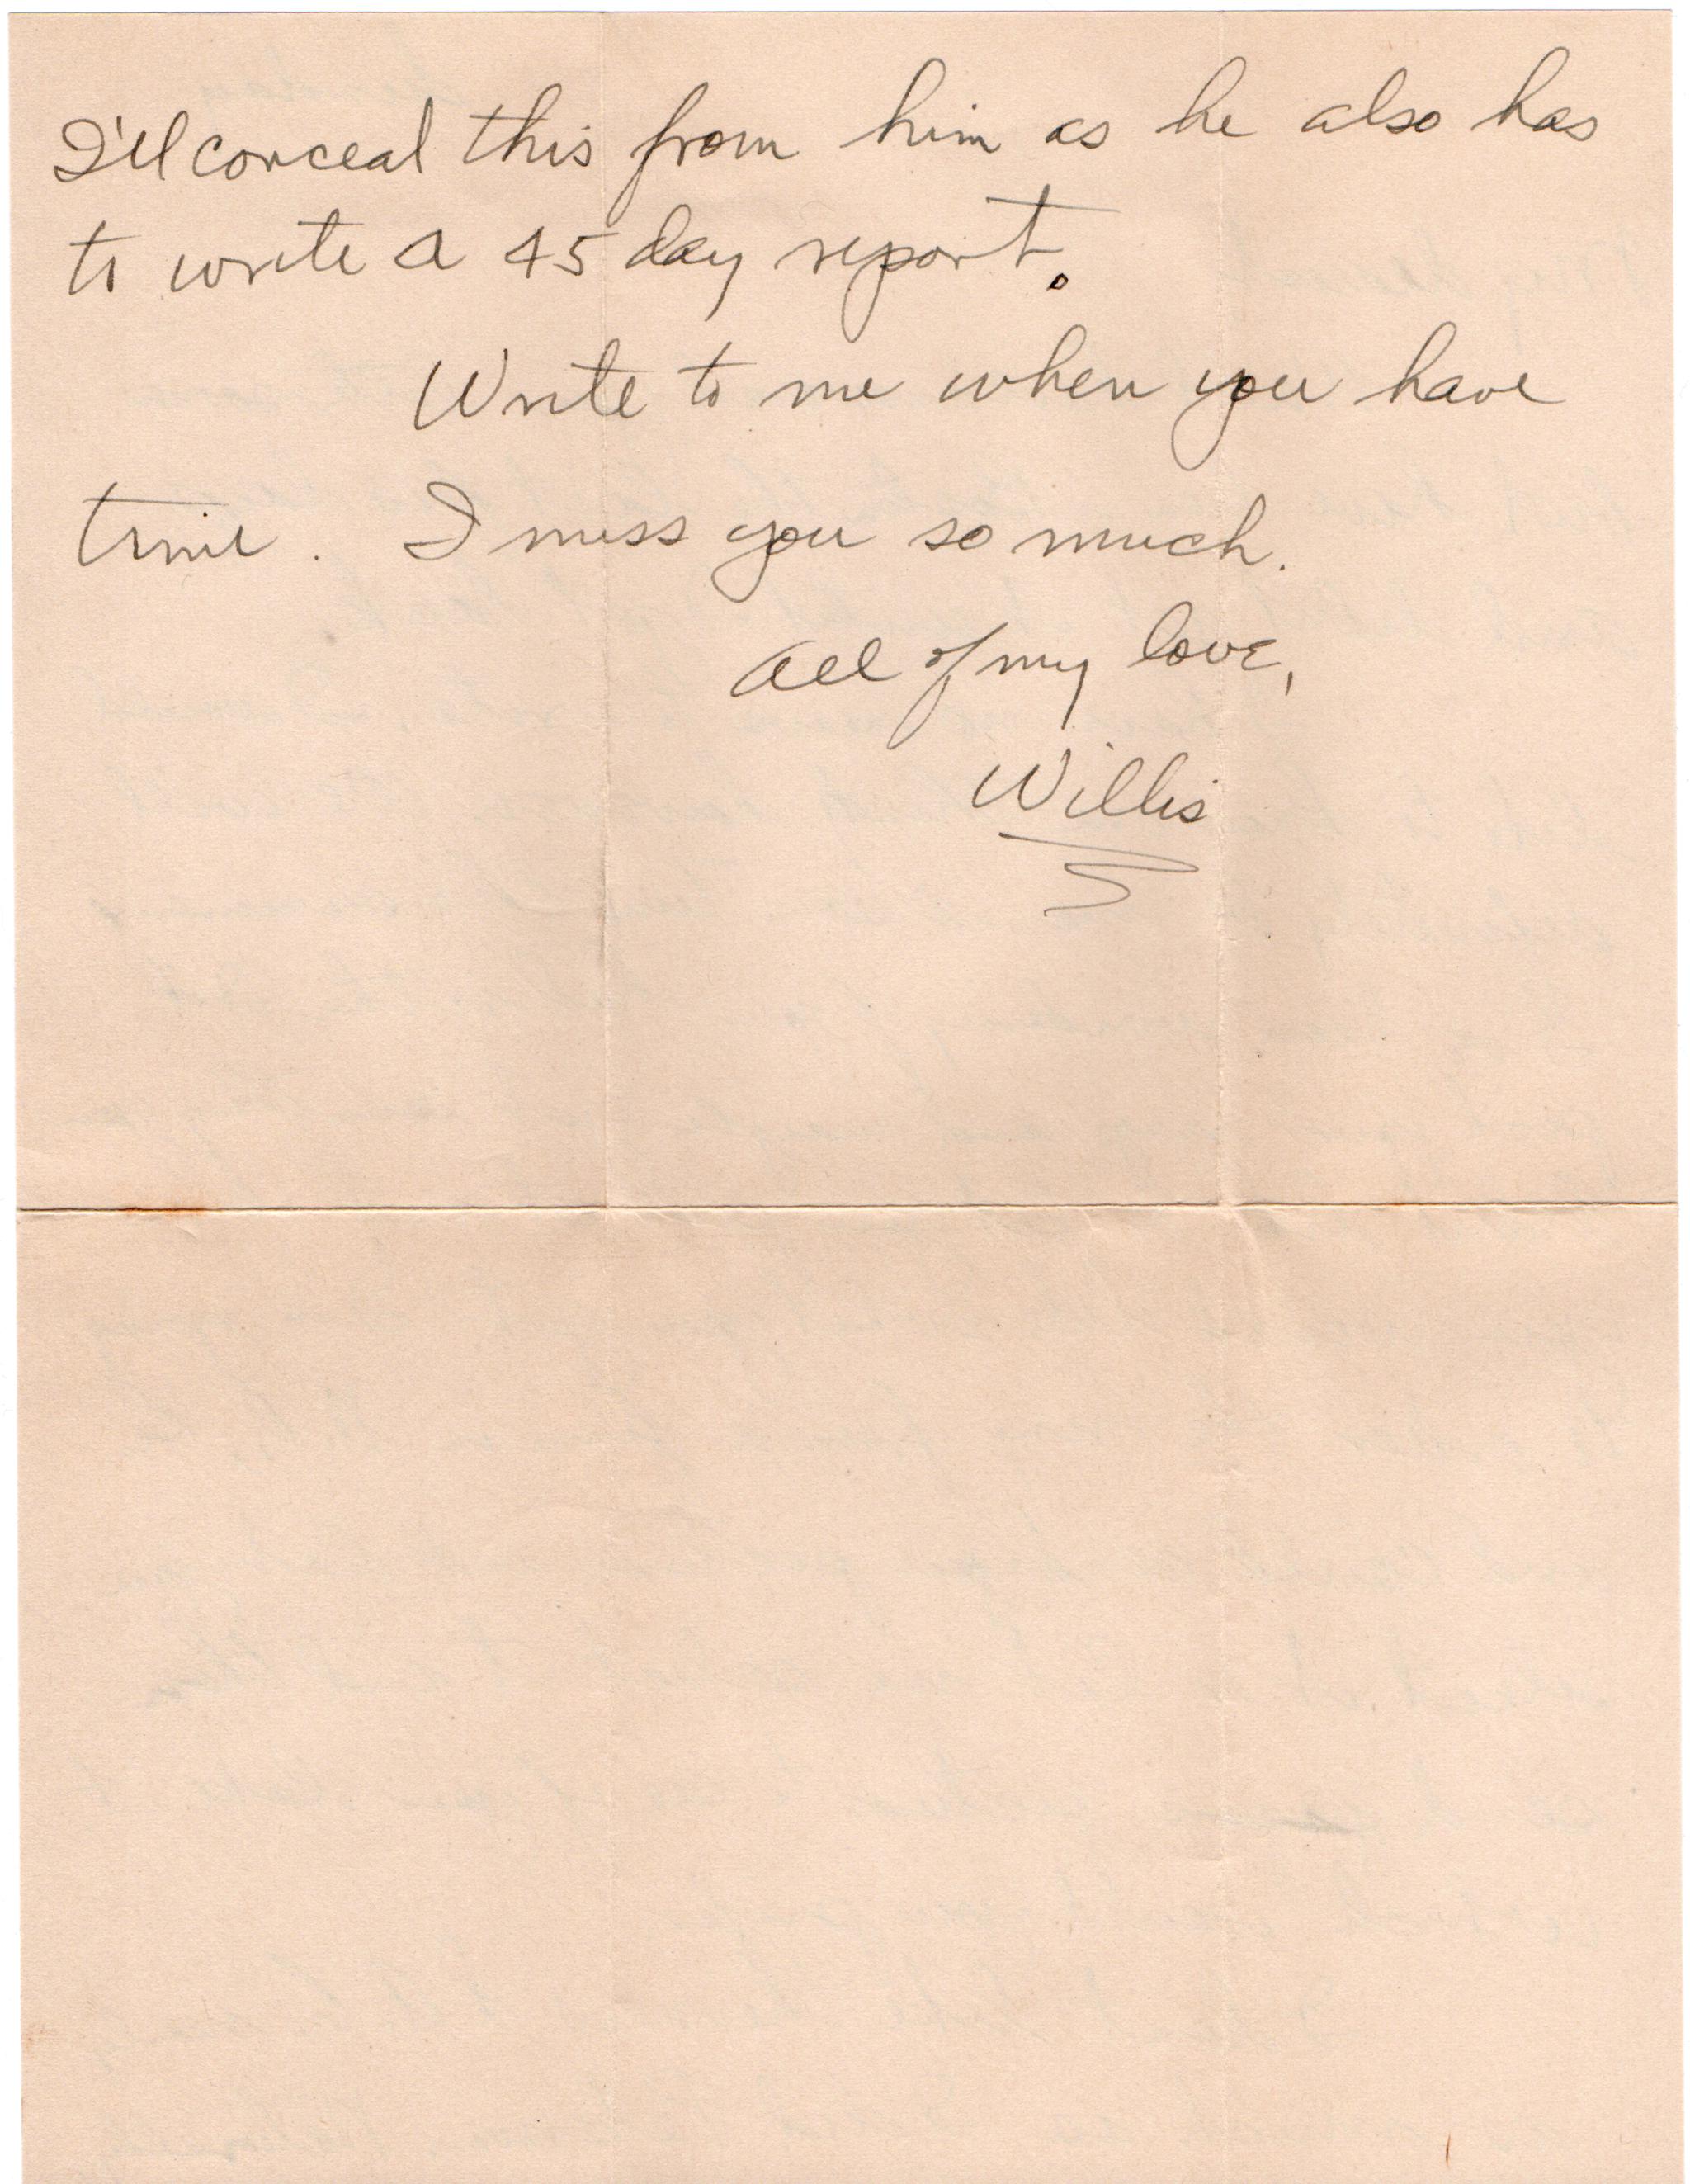 I'll conceal this from him as he also has
to write a 45 day report.
Write to me when you have
time. I miss you so much.
All of my love,
Willis